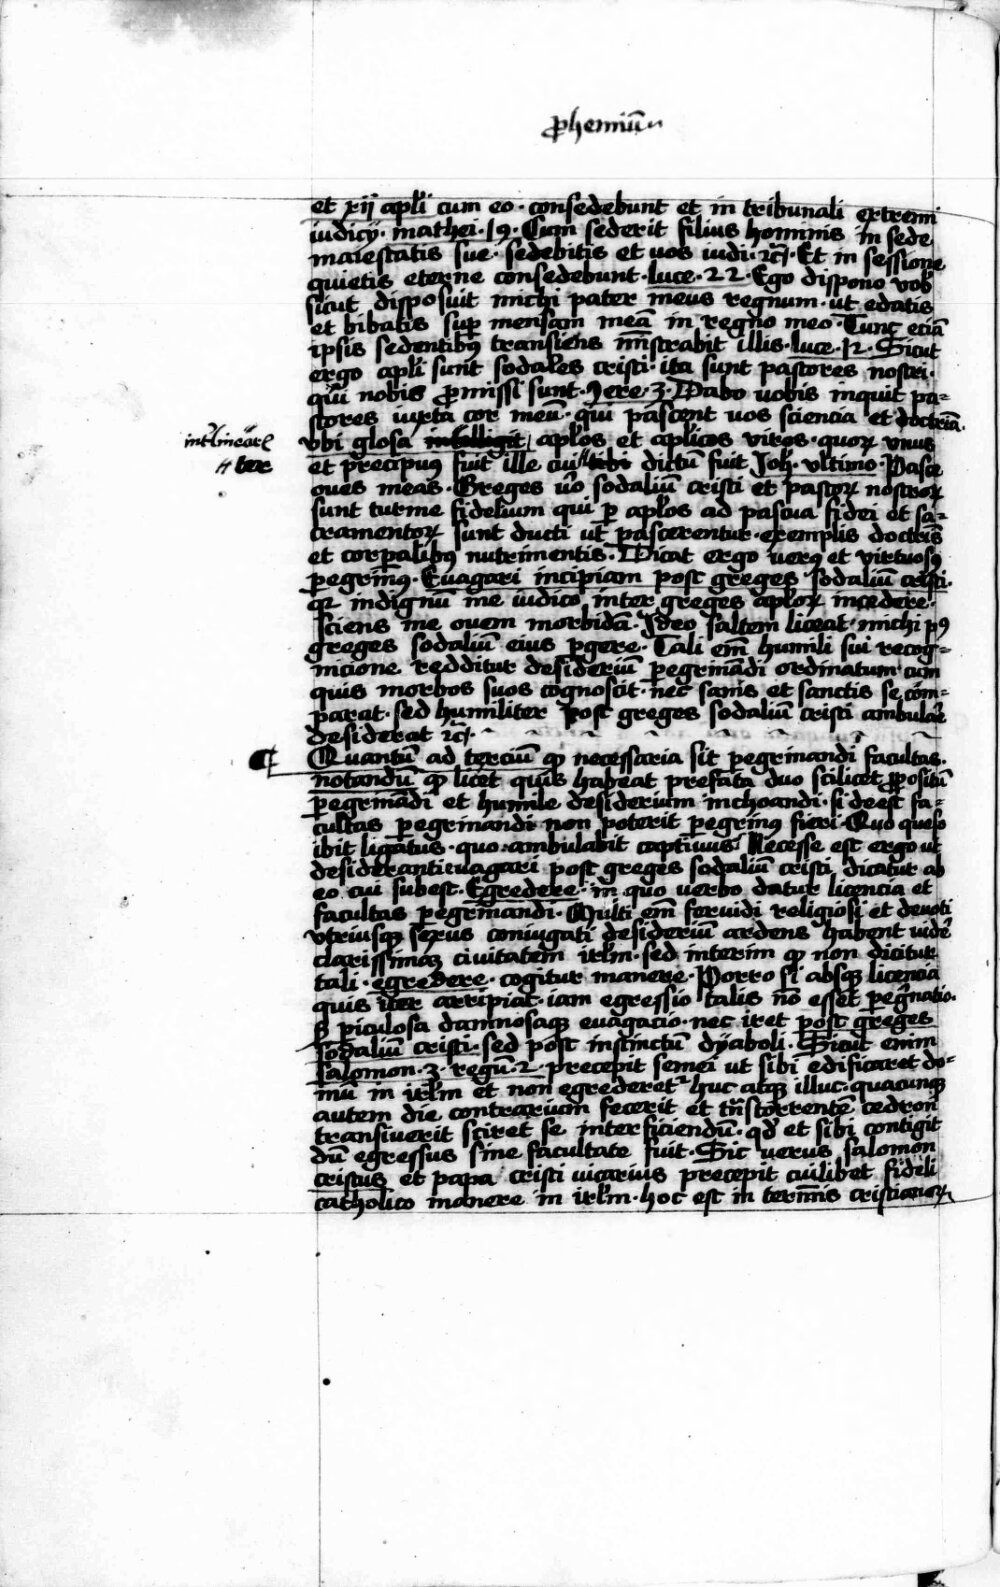 ꝓhemiū
et xij apl̄i cum eo · consedebunt et in tribunali extremi
iudicij · mathei · 19 · Cum sederit filius hominis in sede
maiestatis sue · sedebitis et vos iudi · ⁊c̄ · Et in sessione
quietis eterne consedebunt · luce · 22 · Ego dispono vob̄
sicut disposuit michi pater meus regnum · ut edatis
et bibatis suꝑ mensam meā in regno meo · Tunc eciā
ipsis sedentibꝰ transiens mīstrabit illis · luce · 12 · Sicut
ergo apl̄i sunt sodales cristi · ita sunt pastores nostri ·
qui nobis ꝓmissi sunt · Jere · 3 · Dabo vobis inquit pa=
stores iuxta cor meū · qui pascent vos sciencia et doctrīa ·
vbi glosa intelligit apl̄os et apl̄icos viros · quoꝝ vnus
intl̄ineār
et precipuꝰ fuit ille cui tibi dictū fuit Joh̄ · vltimo · Pasce
ter
oues meas · Greges v̄o sodaliū cristi et pastoꝝ nostroꝝ
sunt turme fidelium qui ꝑ apl̄os ad pascua fidei et sa=
cramentoꝝ sunt ducti ut pascerentur · exemplis doctrīs
et corꝑalibꝰ nutrimentis · Dicat ergo verꝰ et virtuosꝰ
ꝑegrinꝰ · Euagari incipiam post greges sodaliū cristi ·
qꝛ indignū me iudico inter greges apl̄oꝝ incedere ·
sciens me ouem morbidā · Ideo saltem liceat · michi pꝰ
greges sodaliū eius ꝑgere · Tali em̄ humili sui recog=
nicione redditur desideriū ꝑegrināndi ordinatum cum
quis morbos suos cognoscit · nec sanis et sanctis se com=
parat · sed humiliter post greges sodaliū cristi ambulare
desiderat ⁊c̄ ·
Quantū ad terciū ꝙ necessaria sit ꝑegrinandi facultas ·
notandū ꝙ licet quis habeat prefata duo scilicet ꝓpositū
ꝑegrināndi et humile desiderium inchoandi · si deest fa=
cultas ꝑegrinandi non poterit ꝑegrinꝰ fieri · Quo queso
ibit ligatus · quo ambulabit captiuus · Necesse est ergo ut
desideranti euagari post greges sodaliū cristi dicatur ab
eo cui subest · Egredere · in quo verbo datur licencia et
facultas ꝑegrinandi · Multi em̄ feruidi religiosi et deuoti
vtriusqꝫ sexus coniugati desideriū ardens habent videre
clarissimaꝫ ciuitatem irl̄m · sed interim ꝙ non dicitur
tali · egredere · cogitur manere · Porro si absqꝫ licencia
quis iter arripiat · iam egressio talis nō esset ꝑeg̓natio ·
sꝫ ꝑiculosa damnosaqꝫ euagacio · nec iret post greges
sodaliū cristi · sed post instinctū dyaboli · Sicut enim
salomon · 3 · regū · 2 · precepit semei ut sibi edificaret do=
mū in irl̄m et non egrederetᷣ huc atqꝫ illuc · quacunqꝫ
autem die contrarium fecerit et tn̄storrentē cedron
transiuerit sciret se interficiendū · qd̄ et sibi contigit
dū egressus sine facultate fuit · Sic verus salomon
cristus et papa cristi vicarius precepit cuilibet fideli
catholico manere in irl̄m · hoc est in termīs cristianoꝝ